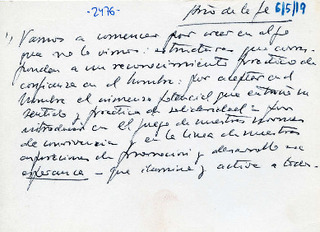 -2476-
año de la fe 6/5/19
1) Vamos a comenzar por creer en algo
que no lo vimos: estructuras que corres-
pondan a un reconocimiento práctico de
confianza en el hombre: por aceptar en el
hombre el inmenso potencial que entraña su
sentido y práctica de solidaridad -
introducir en el juego de nuestras normas
de convivencia y en la línea de nuestras
aspiraciones de promoción y desarrollo una
esperanza - que ilumine y active a todos.